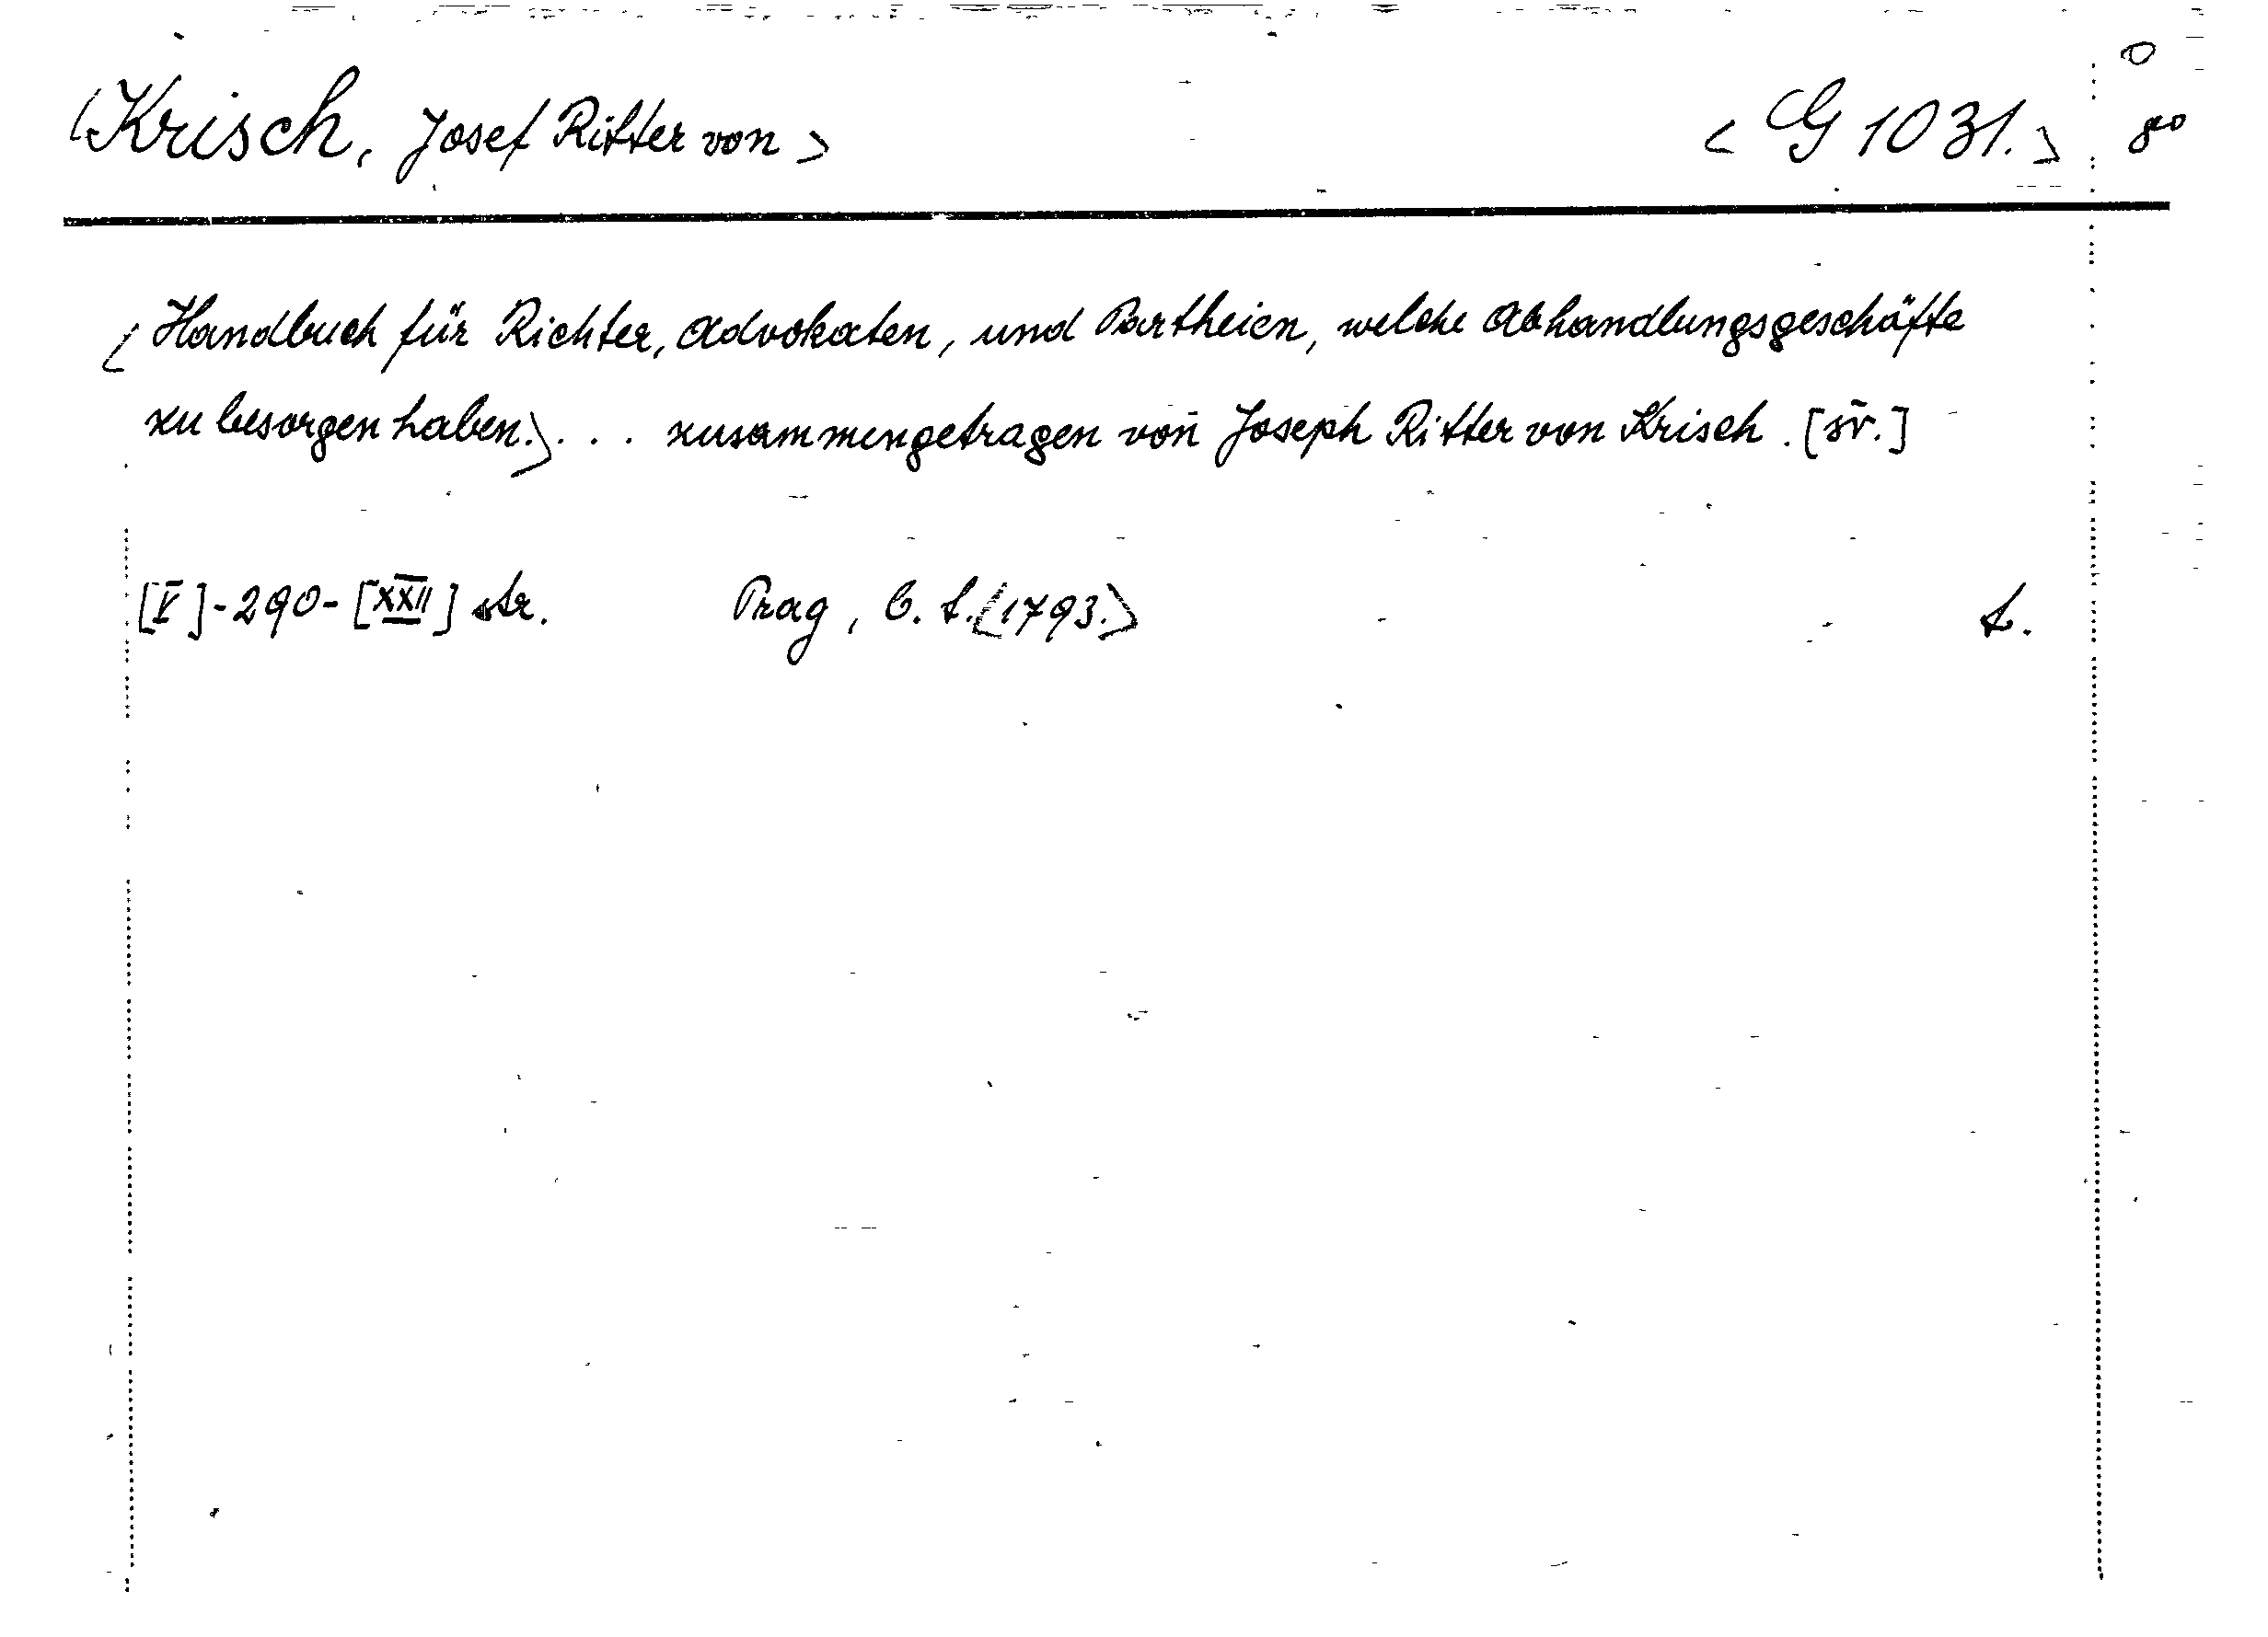 <Krisch, Josef Ritter von> <G 1031.> 8°
<Handbuch für Richter, Advokaten, und Partheien, welche Abhandlungsgeschäfte
zu besorgen haben.> . . . zusammengetragen von Joseph Ritter von Krisch. [sv.]
[V]-290-[XXII] str. Prag, b. t. <1793.> t.